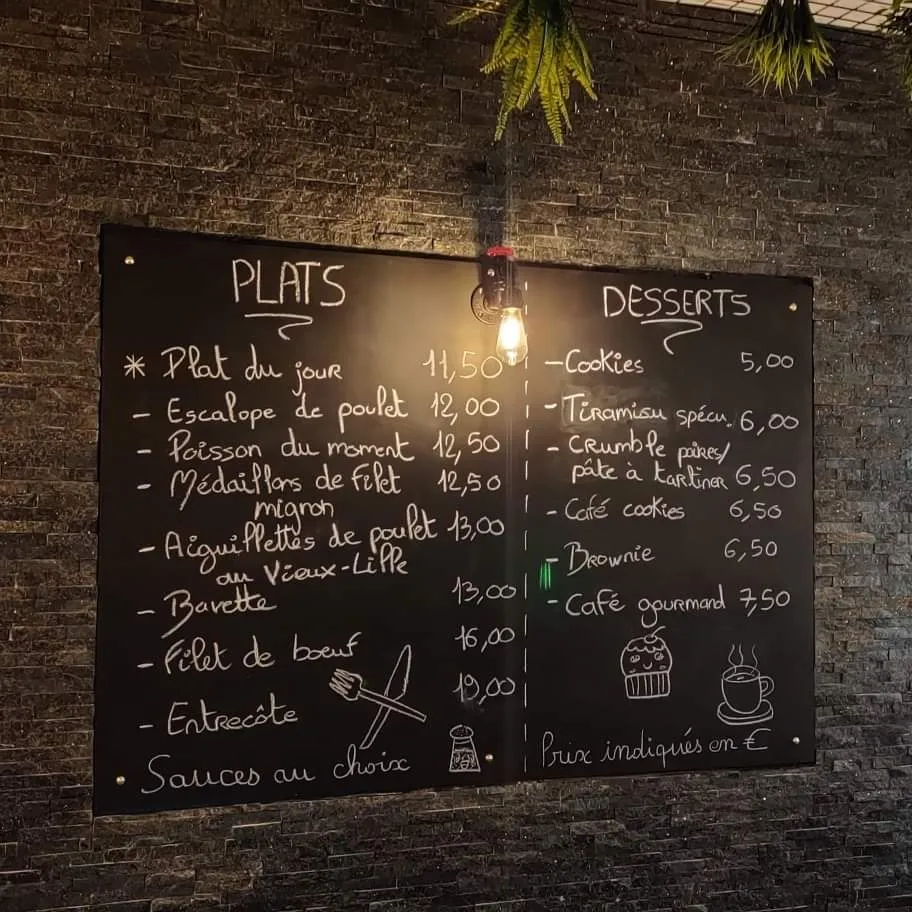 PLATS
* Plat du jour 11,50
- Escalope de poulet 12,00
- Poisson du moment 12,50
- Médaillons de filet 12,50
mignon
- Aiguillettes de poulet 13,00
au Vieux-Lille
- Bavette 13,00
- Filet de boeuf 16,00
- Entrecôte 19,00
Sauces au choix
DESSERTS
- Cookies 5,00
- Tiramisu spécu. 6,00
- Crumble poires/
pâte à tartiner 6,50
- Café cookies 6,50
- Brownie 6,50
- Café gourmand 7,50
Prix indiqués en €